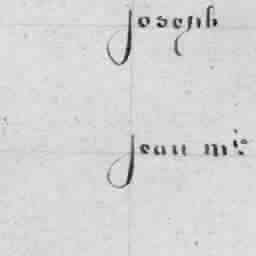 joseph
jean m.ie